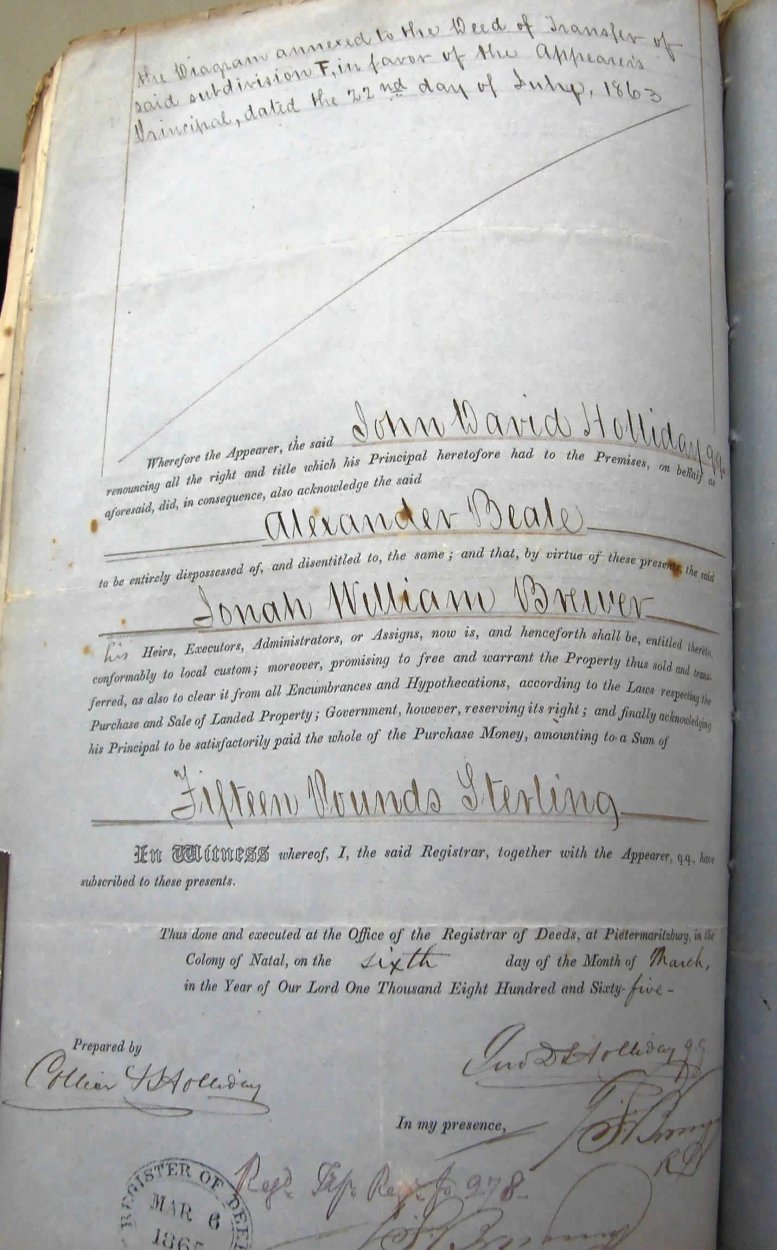 the Diagram annexed to the Deed of Transfer of
said subdivision F, in favor of the Appearer's
Principal, dated the 22nd day of July, 1863
Wherefore the Appearer, the said John David Holliday qq.
renouncing all the right and title which his Principal heretofore had to the Premises, on behalf as
aforesaid, did, in consequence, also acknowledge the said
Alexander Beale
to be entirely dispossessed of, and disentitled to, the same; and that, by virtue of these presents, the said
Jonah William Brewer
his Heirs, Executors, Administrators, or Assigns, now is, and henceforth shall be, entitled thereto,
conformably to local custom; moreover, promising to free and warrant the Property thus sold and trans-
ferred, as also to clear it from all Encumbrances and Hypothecations, according to the Laws respecting the
Purchase and Sale of Landed Property; Government, however, reserving its right; and finally acknowledging
his Principal to be satisfactorily paid the whole of the Purchase Money, amounting to a Sum of
Fifteen Pounds Sterling
In Witness whereof, I, the said Registrar, together with the Appearer, qq. have
subscribed to these presents.
Thus done and executed at the Office of the Registrar of Deeds, at Pietermaritzburg, in the
Colony of Natal, on the sixth day of the Month of March,
in the Year of Our Lord One Thousand Eight Hundred and Sixty-five-
Prepared by
Collier & Holliday
Jno D Holliday qq
In my presence,
RD
Regd. 278
REGISTER OF DEE
MAR 6
1865